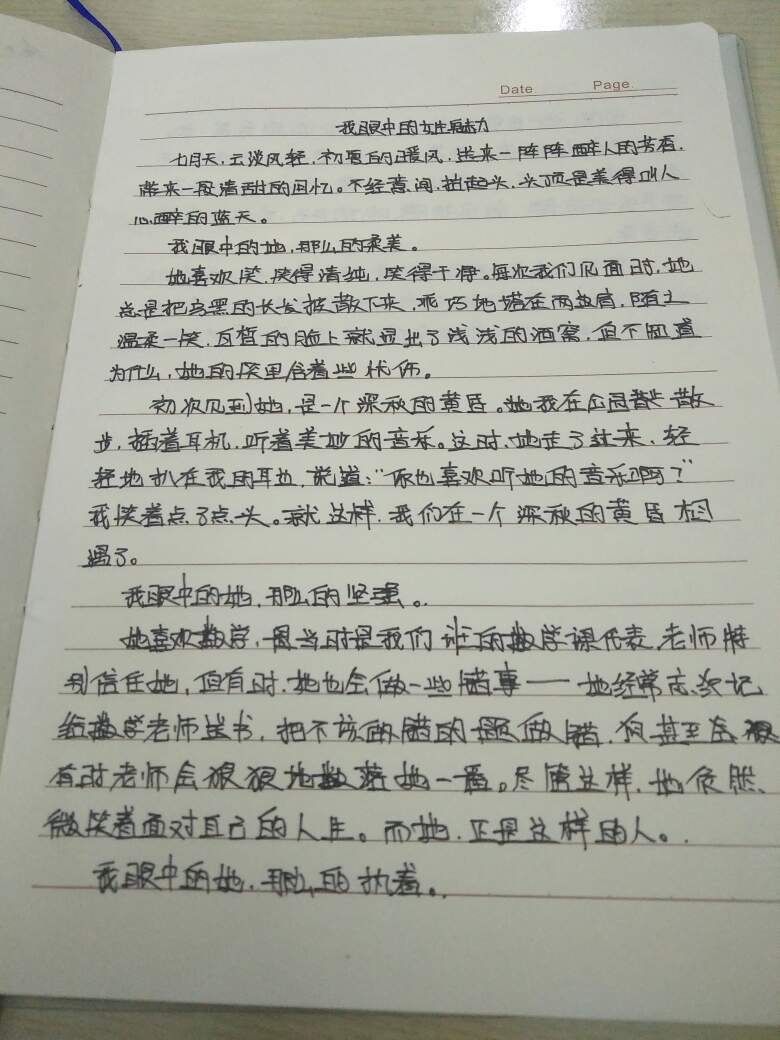 Date Page.
我眼中的女性魅力
七月天,云淡风轻,初夏的暖风,送来一阵阵醉人的芳香,
带来一段清甜的回忆。不经意间,抬起头,头顶是美得叫人
心醉的蓝天。
我眼中的她,那么的柔美。
她喜欢笑,笑得清纯,笑得干净。每次我们见面时,她
总是把乌黑的长发披散下来,乖巧地搭在两边肩,随之
温柔一笑,白皙的脸上就显出了浅浅的酒窝,但不知道
为什么,她的笑里含着些忧伤。
初次见到她,是一个深秋的黄昏。她我在公园散步
步,插着耳机,听着美妙的音乐。这时,她走了过来,轻
轻地扒在我的耳边,说道:“你也喜欢听她的音乐啊?”
我笑着点了点头。就这样,我们在一个深秋的黄昏相
遇了。
我眼中的她,那么的坚强。
她喜欢数学,当时是我们的数学课代表,老师特
别信任她,但有时,她也会做一些错事——她经常忘记
给数学老师送书,把不该做错的题做错,甚至
有时老师会狠狠地数落她一番。尽管这样,她依然
微笑着面对自己的人生。而她,正是这样的人。
我眼中的她,那么的执着。